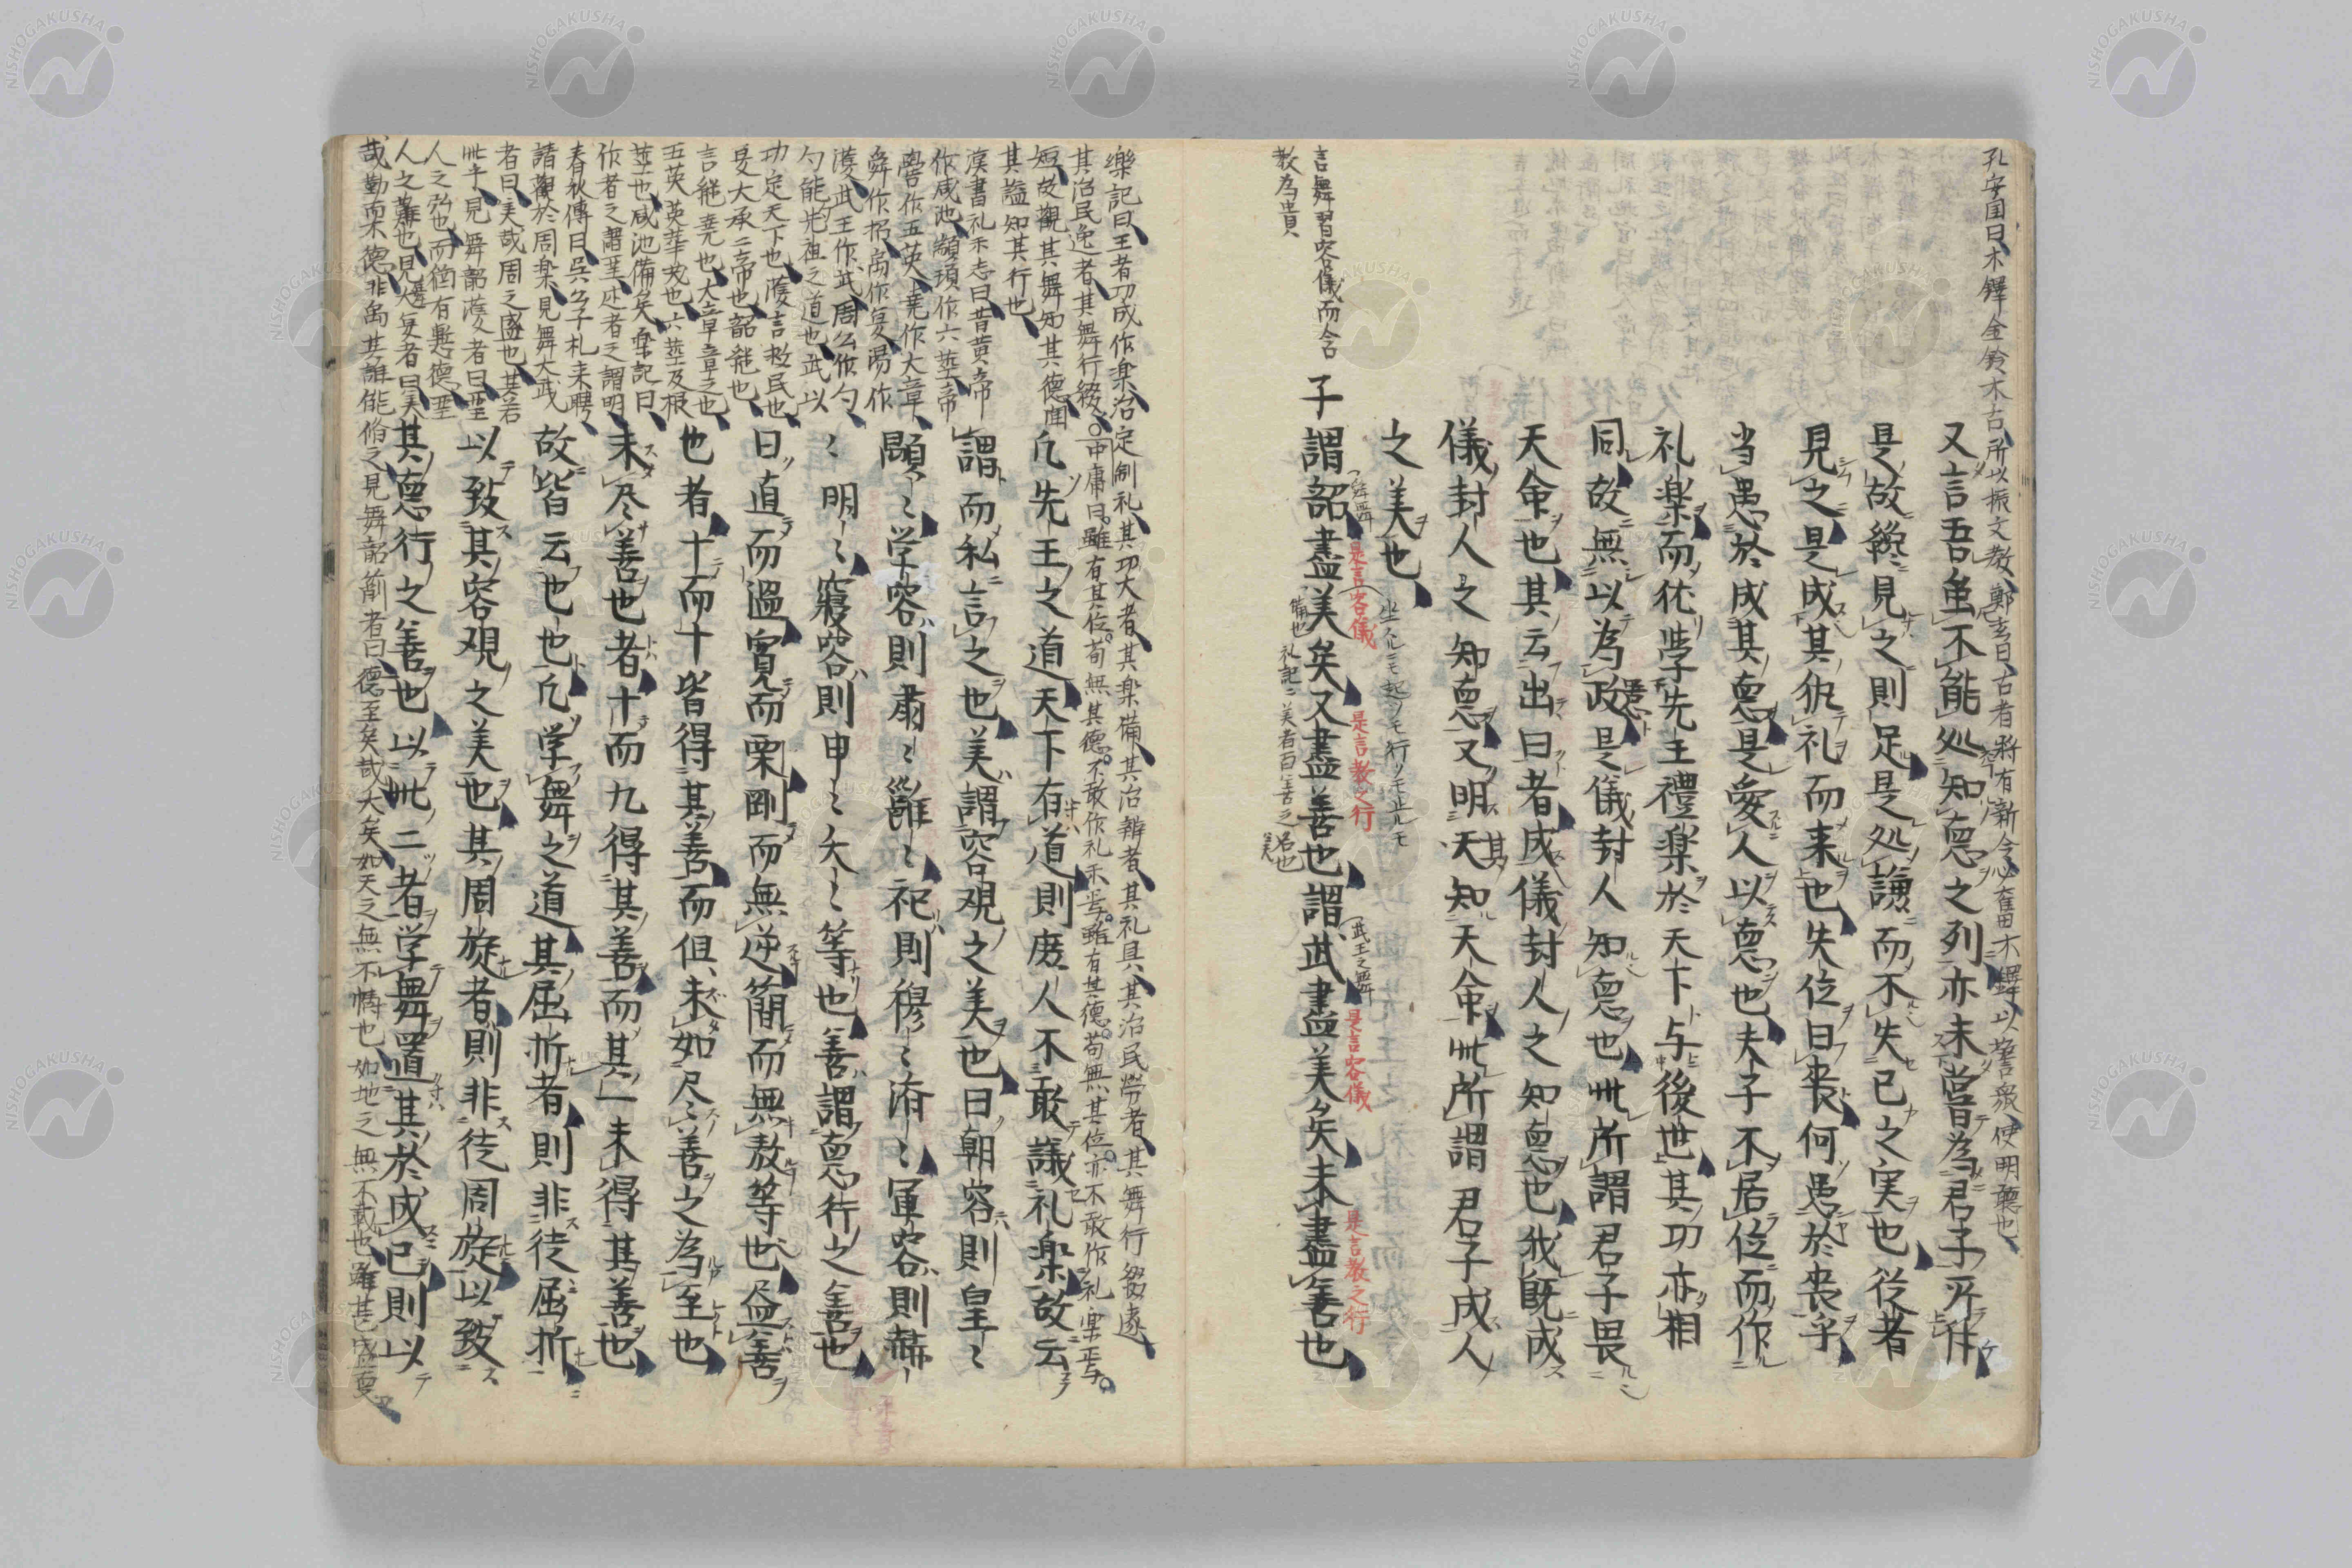 孔安国曰木鐸金鈴木舌所以振文教鄭玄曰古者将有新令必奮木鐸以警衆使明聽也
又言吾虽不能処知悳之列亦未嘗為君子所
是故纔見之則足是処謙而不失已之実也従者
見之是成其仇礼而来也失位曰喪何患於喪乎
当愚於成其悳是愛人以悳也夫子不居位而作
礼楽而优学先王禮楽於天下与後世其功亦相
同故無以為政是儀封人知悳也此所謂君子畏
天命也其云出曰者成儀封人之知悳也我既成
儀封人之知悳又明天知天命此所謂君子成人
之美也
坐スルニモ起ノモ行ノモ止ルモ
子謂韶盡美矣又盡善也謂武盡美矣未盡善也
舜舞
是言容儀
是言教之行
武王之舞
是言容儀
是言教之行
備也 礼記ニ美者百善之名也
言舞習容儀而合
教為貴
樂記曰王者功成作楽治定制礼其功大者其楽備其治辯者其礼具其治民勞者其舞行綴遠
其治民逸者其舞行綴
短故觀其舞知其德聞
其謚知其行也
中庸曰雖有其位苟無其德不敢作礼楽焉雖有其德苟無其位亦不敢作礼楽焉
凡先王之道天下有道則庶人不敢議礼楽故云
漢書礼楽志曰昔黄帝
作咸池顓頊作六莖帝
謂而私言之也美謂容覌之美也曰朝容則皇〻
嚳作五英堯作大章
舜作招禹作夏湯作
顒〻学容則粛〻雝〻祀則穆〻済〻軍容則赫
濩武王作武周公作勺
勺能先祖之道也武以
〻明〻寢容則申〻夭〻等也善謂悳行之善也
功定天下也濩言救民也
夏大承二帝也韶継也
曰直而溫寛而栗剛而無逆簡而無敖等也益善
言継堯也大章章之也
五英英華茂也六莖及根
也者十而十皆得其善而但未如尽〻善之為至也
莖也咸池備矣楽記曰
作者之謂聖述者之謂明
未尽善也者十而九得其善而其一未得其善也
春秋傳曰呉公子札来聘
請觀於周楽見舞大武
故皆云也也凡学舞之道其屈折者則非徒屈折
者曰美哉周之盛也其若
此乎見舞韶濩者曰聖
以致其容覌之美也其周旋者則非徒周旋以致
人之弘也而猶有慙德聖
人之難也見舞大夏者曰美
其悳行之善也以此二者学舞道其於成已則以
哉勤而不德非禹其誰能脩之見舞韶箾者曰德至矣哉大矣如天之無不幬也如地之無不載也雖甚盛悳